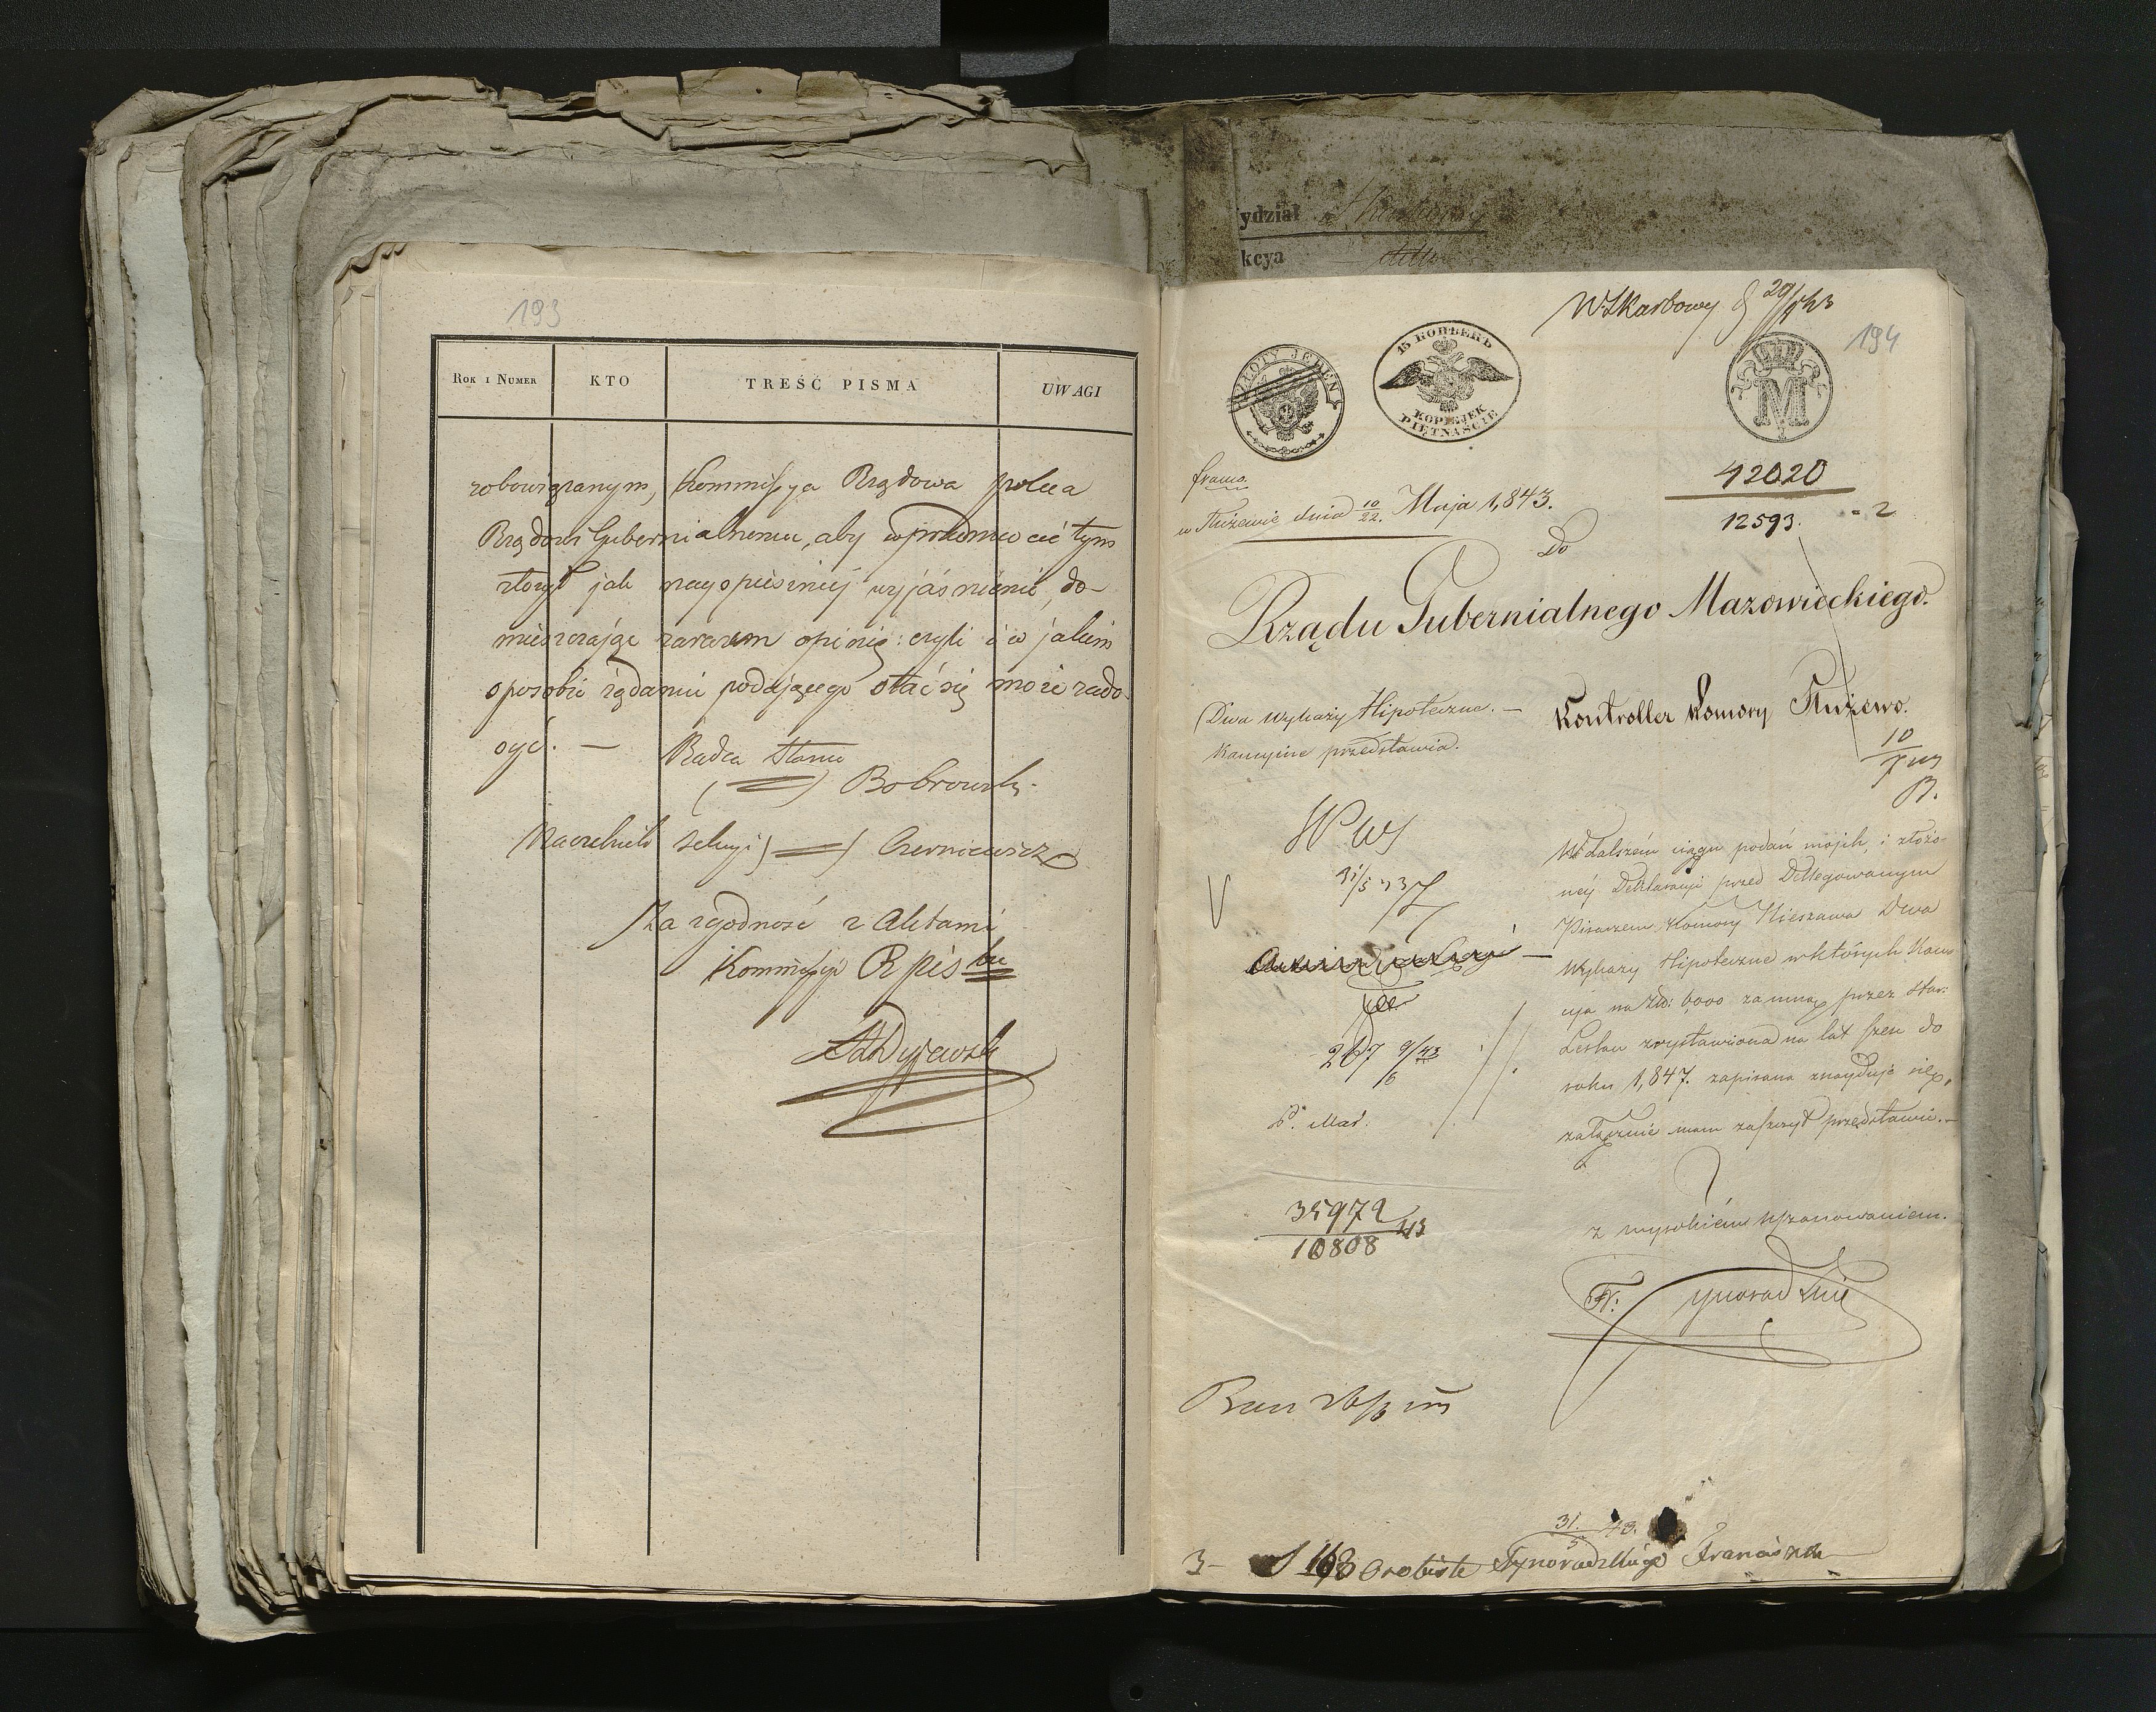 193
Rok i Numer
KTO
TREŚĆ PISMA
UWAGI
zobowiązanym, Kommissya Rządowa poleca
Rządowi Gubernialnemu, aby w przedmiocie tym
złożył jak nayspieszniej wyjaśnienie, do-
mieszczając zarazem opinię: czyli i w jakim
sposobie żądaniu podającego stać się może zado-
syć. —
Radca Stanu
(=) Bobrowski.
Naczelnik Sekcyi (=) Czerniewicz
Za zgodność z Aktami
Kommissyi
ydział
kcya
W. Skarbowy 29/5 43
194
ZŁOTY JEDEN
15 КОПѢЕКЪ
KOPIEJEK
PIĘTNAŚCIE
M
42020
12593. - 2
franco.
w Służewie dnia 10/22. Maja 1,843.
Do
Rządu Gubernialnego Mazowieckiego.
Dwa wykazy Hipoteczne. —
Kaucyine przedstawia.
Kontroller Komory Służewo.
10
B.
31/5 43
W dalszém ciągu podań mojch, i złożo-
néj Deklaracyi przed Delegowanym
Pisarzem Komory Nieszawa Dwa
Wykazy Hipoteczne w których Kau-
cya na Złp: 6000 za mną przez Star:
Leslau wystawiona na lat sześć do
roku 1,847. zapisana znayduje się,
załącznie mam zaszczyt przedstawić. —
267 9/6 43
P. Mas.
35972
10808 43
z wysokiém uszanowaniem.
Fr: Tynoradzki
31/5 43.
3- 168 Osobiste Tynoradzkiego Franciszka